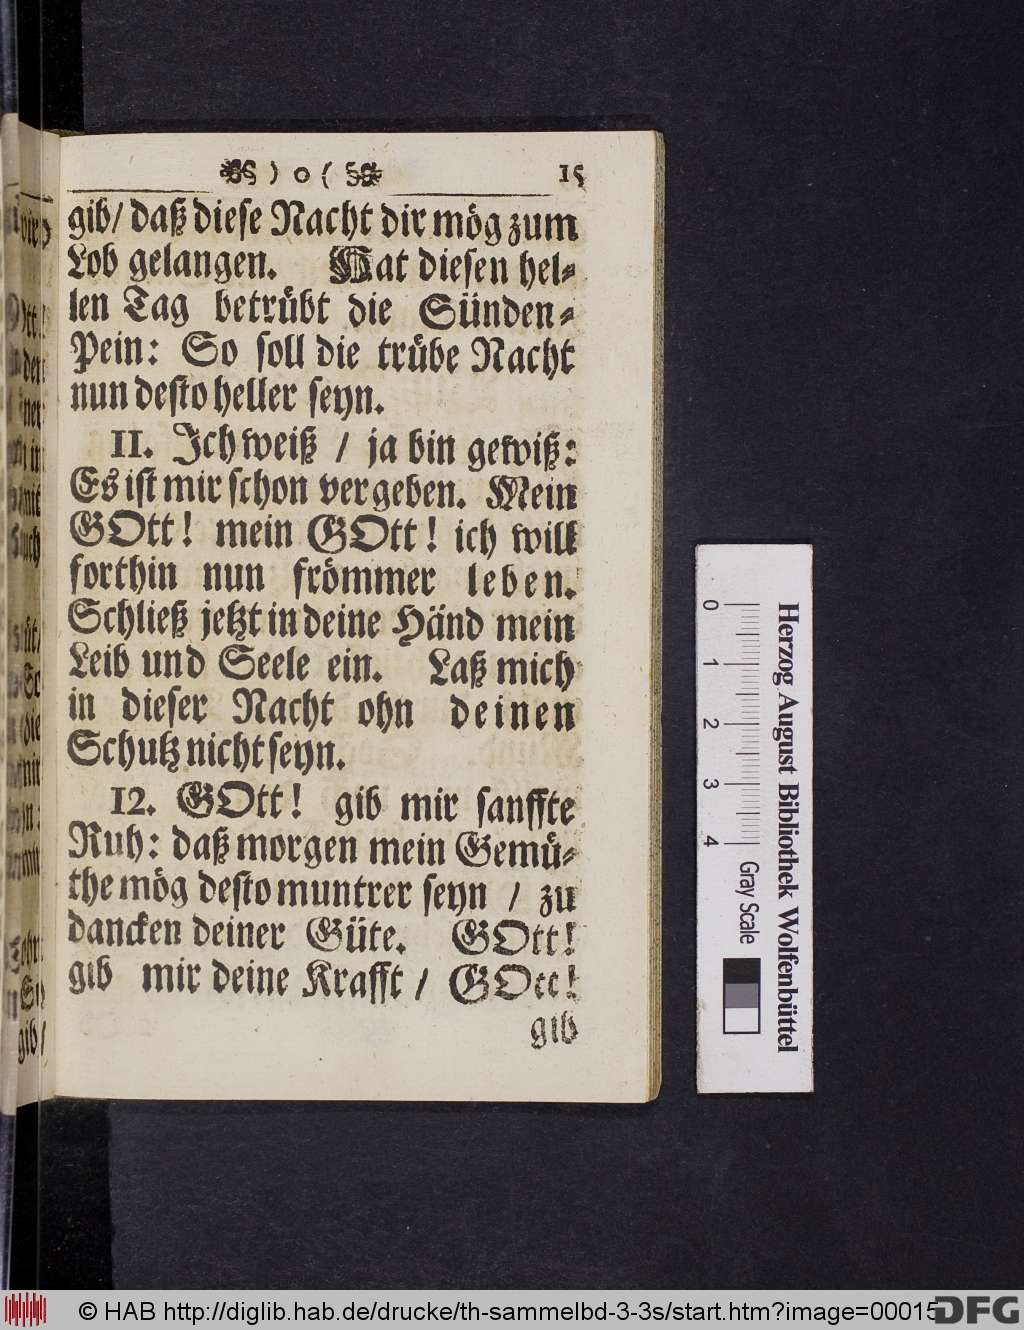 ) o ( 15
gib/ daß diese Nacht dir mög zum
Lob gelangen. Hat diesen hel-
len Tag betrübt die Sünden-
Pein: So soll die trübe Nacht
nun desto heller seyn.
11. Ich weiß / ja bin gewiß:
Es ist mir schon vergeben. Mein
GOtt! mein GOtt! ich will
forthin nun frömmer leben.
Schließ jetzt in deine Händ mein
Leib und Seele ein. Laß mich
in dieser Nacht ohn deinen
Schutz nicht seyn.
12. GOtt! gib mir sanffte
Ruh: daß morgen mein Gemü-
the mög desto muntrer seyn / zu
dancken deiner Güte. GOtt!
gib mir deine Krafft / GOtt!
gib
gib /
Herzog August Bibliothek Wolfenbüttel
0 1 2 3 4 Gray Scale
© HAB http://diglib.hab.de/drucke/th-sammelbd-3-3s/start.htm?image=00015
DFG